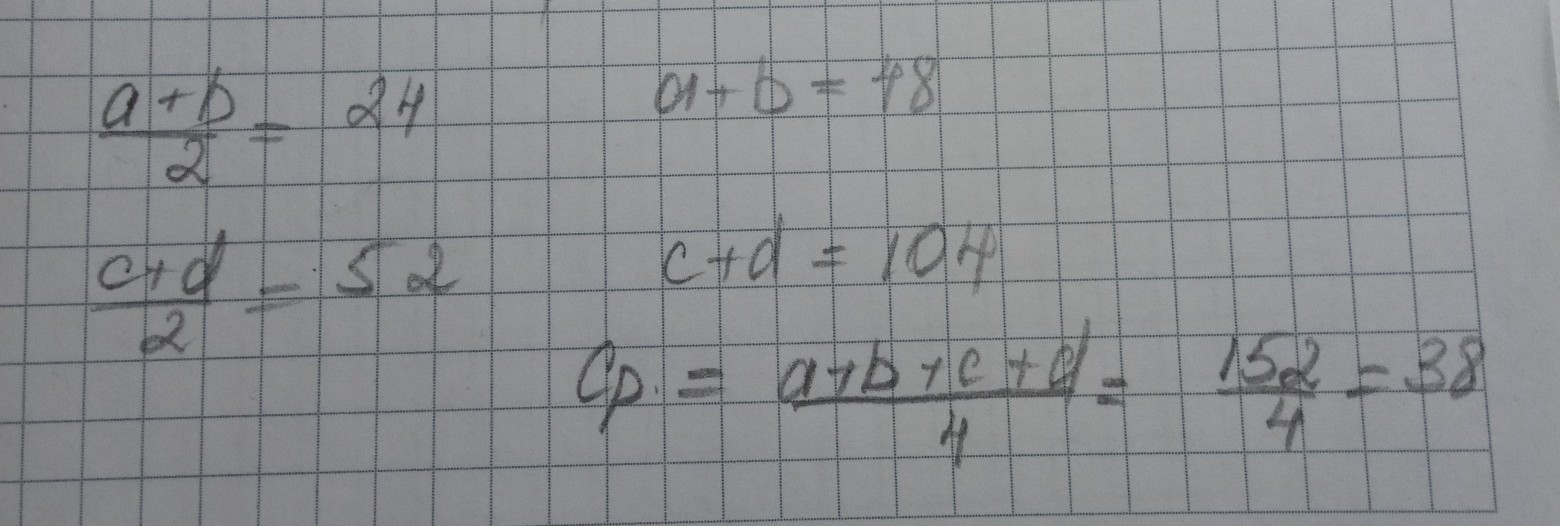 a+b/2 = 24 a+b = 48
c+d/2 = 52 c+d = 104
Ср. = a+b+c+d/4 = 152/4 = 38